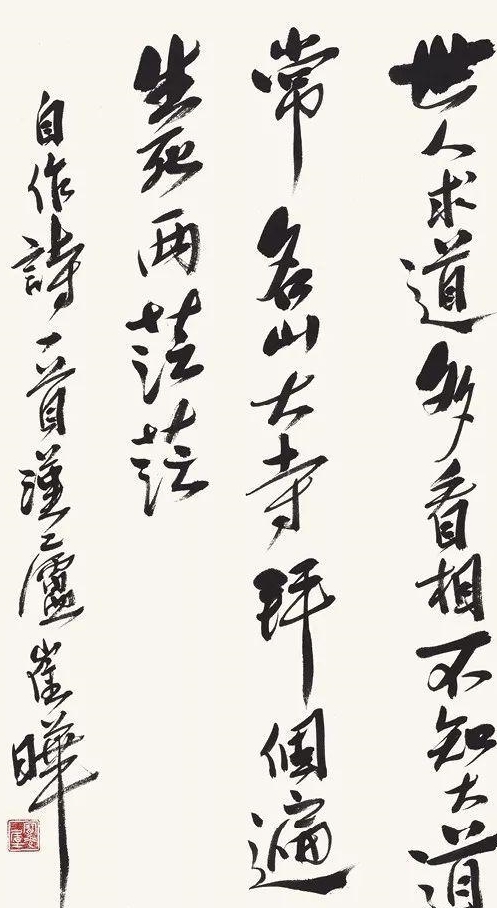 世人求道多看相不知大道
常名山大寺拜個遍
生死兩茫茫
自作詩一首漢廬崔曄